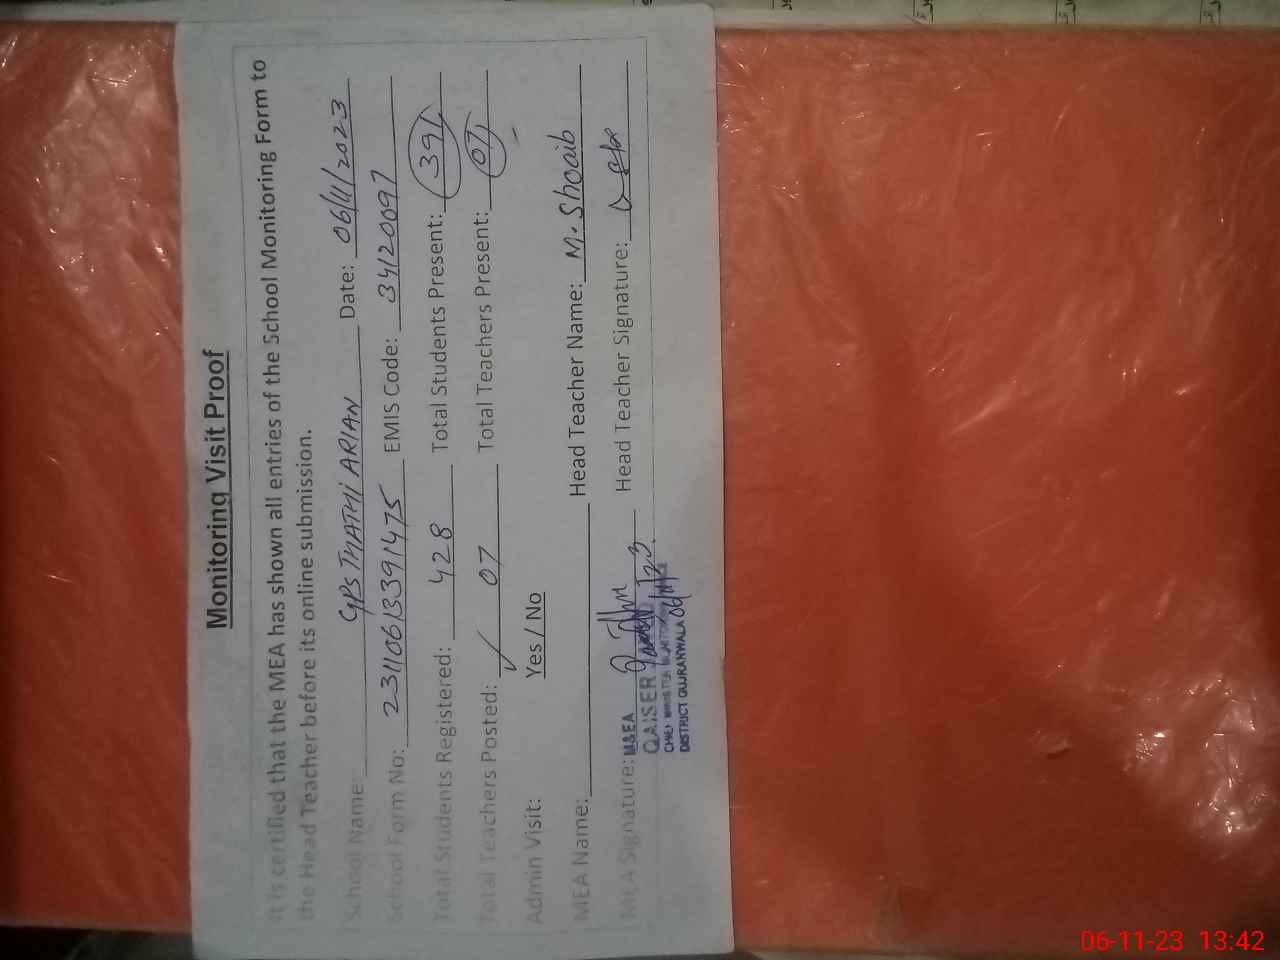 Monitoring Visit Proof
It is certified that the MEA has shown all entries of the School Monitoring Form to
the Head Teacher before its online submission.
School Name: GPS THATHI ARIAN Date: 06/11/2023
School Form No: 23110613391475 EMIS Code: 34120097
Total Students Registered: 428 Total Students Present: 391
Total Teachers Posted: 07 Total Teachers Present: 07
Admin Visit: Yes / No
MEA Name: Head Teacher Name: M. Shoaib
MEA Signature: Head Teacher Signature:
M&EA
QAISER
CHIEF MINISTER MONITORING
DISTRICT GUJRANWALA 06/11/23
06-11-23 13:42